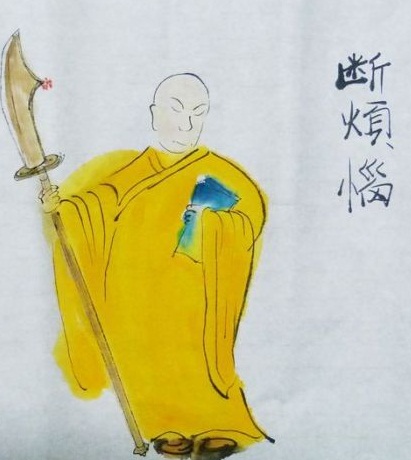 断煩惱